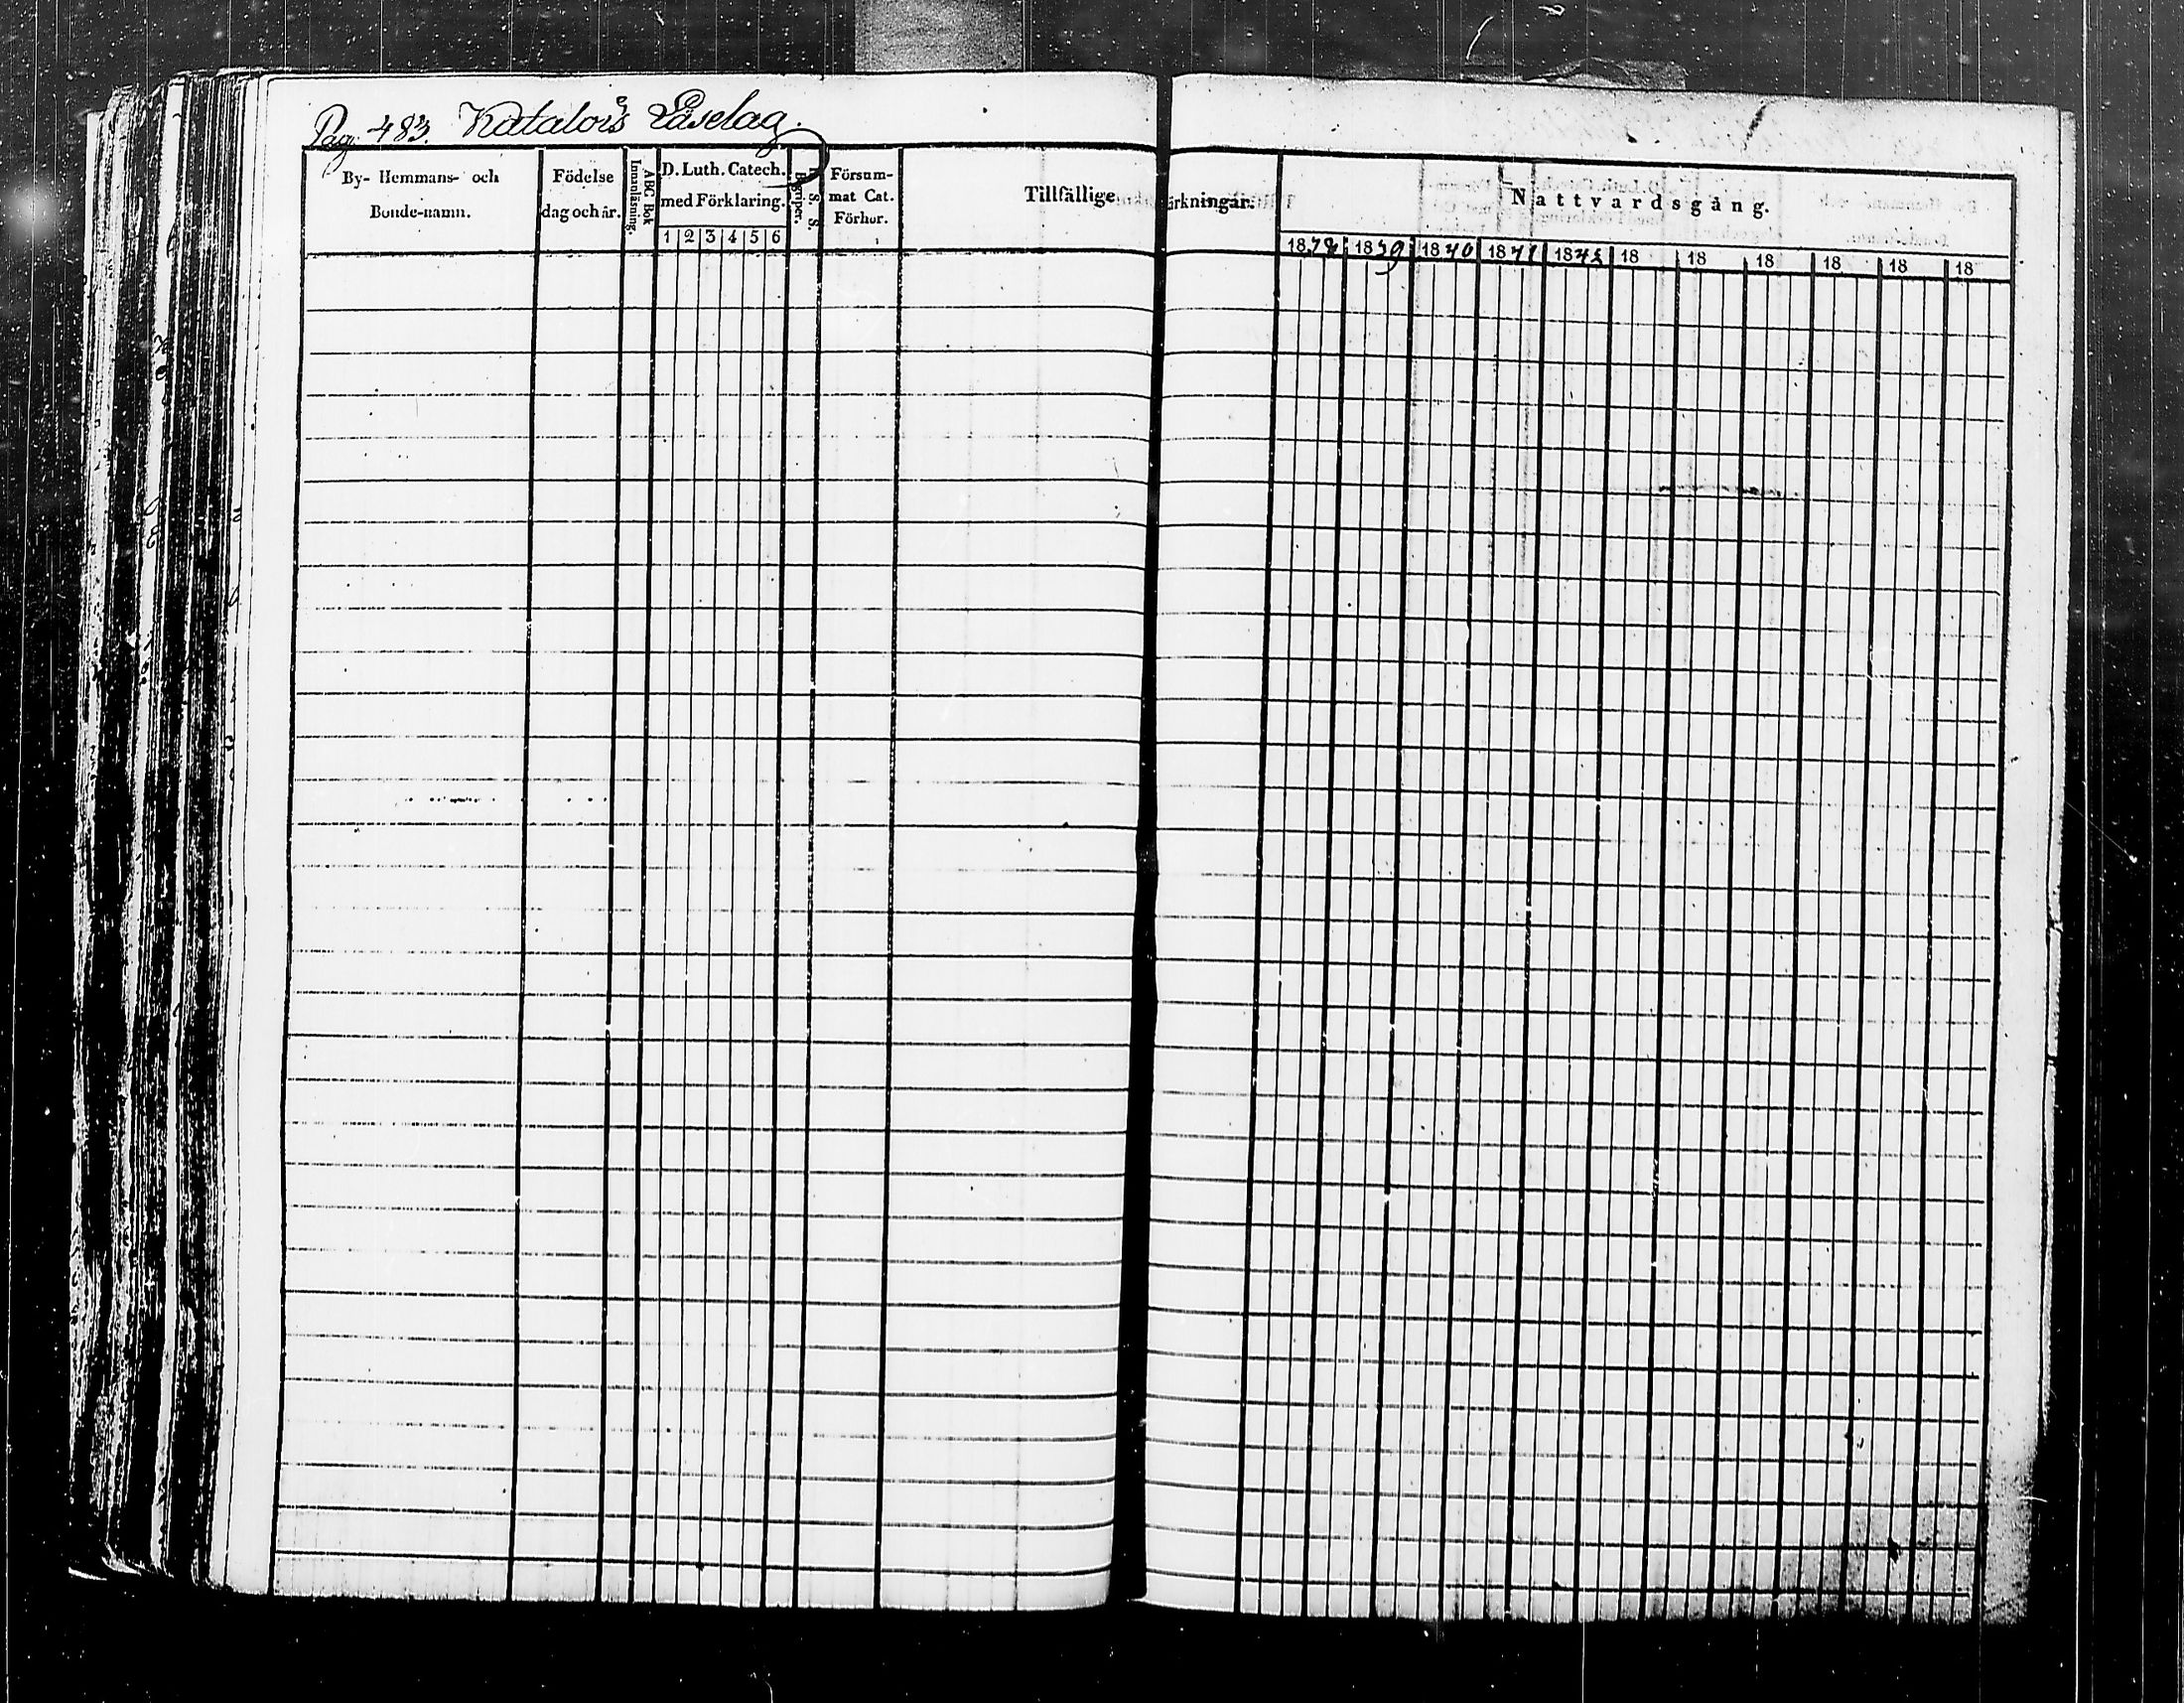 Pag. 483. Katalois Läselag.
By- Hemmans- och
Bonde-namn.
Födelse
dag och år.
ABC Bok
Innanläsning.
D. Luth. Catech.
med Förklaring.
1 2 3 4 5 6
Begriper.
S. S.
Försum-
mat Cat.
Förhör.
Tillfällige
ärkningar.
Nattvardsgång.
1838 1839 1840 1841 1842 18 18 18 18 18 18